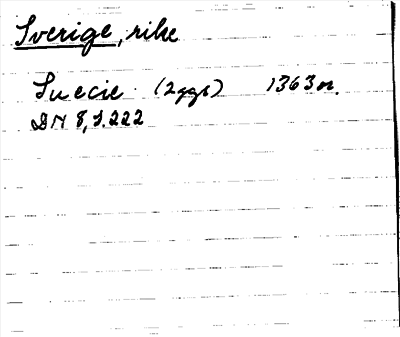 Sverige, rike
Suecie (2ggr) 1363 or.
DN 8, s. 222